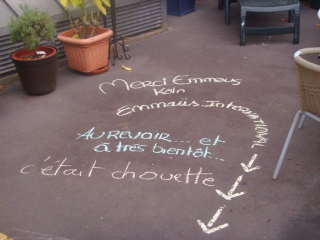 Merci Emmaus
Köln
Emmaüs International
AU REVOIR.... et
à très bientôt...
c'était chouette